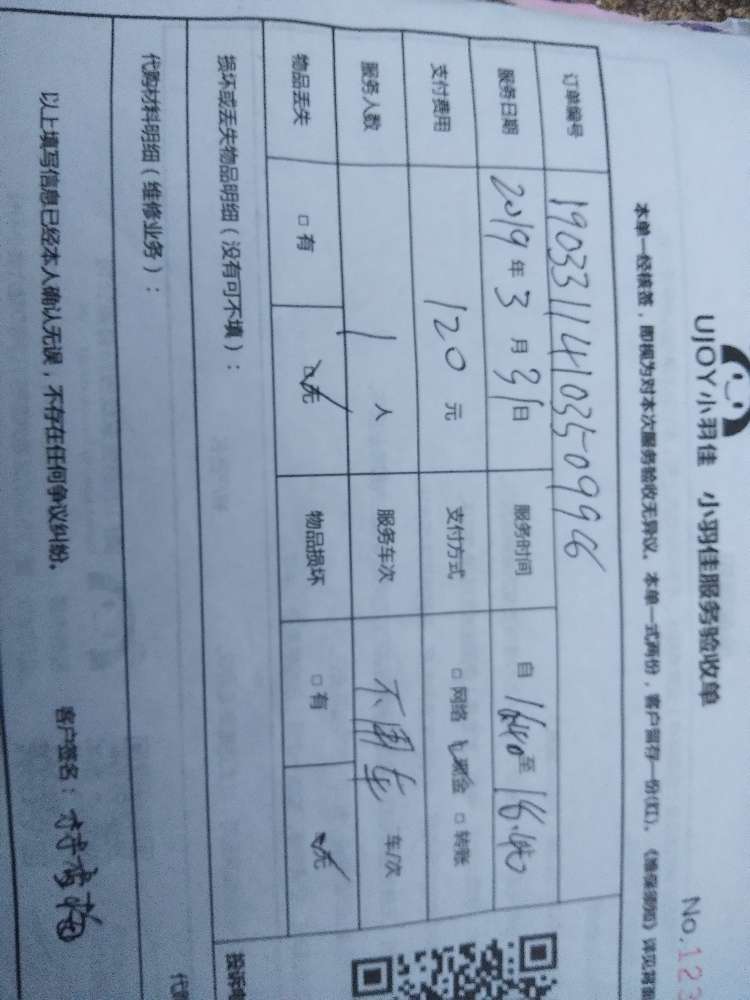 UJOY小羽佳 小羽佳服务验收单
No.123
本单一经核签，即视为对本次服务验收无异议。本单一式两份，客户留存一份(红)。《维保须知》详见背面
订单编号 190331141035099 6
服务日期 2019年3月31日 服务时间 自 至
支付费用 120元 支付方式 □网络 现金 □转账
服务人数 1人 服务车次 不用车 车/次
物品丢失 □有 无 物品损坏 □有 无
损坏或丢失物品明细（没有可不填）：
代购材料明细（维修业务）：
投诉电
代购
以上填写信息已经本人确认无误，不存在任何争议纠纷。 客户签名：